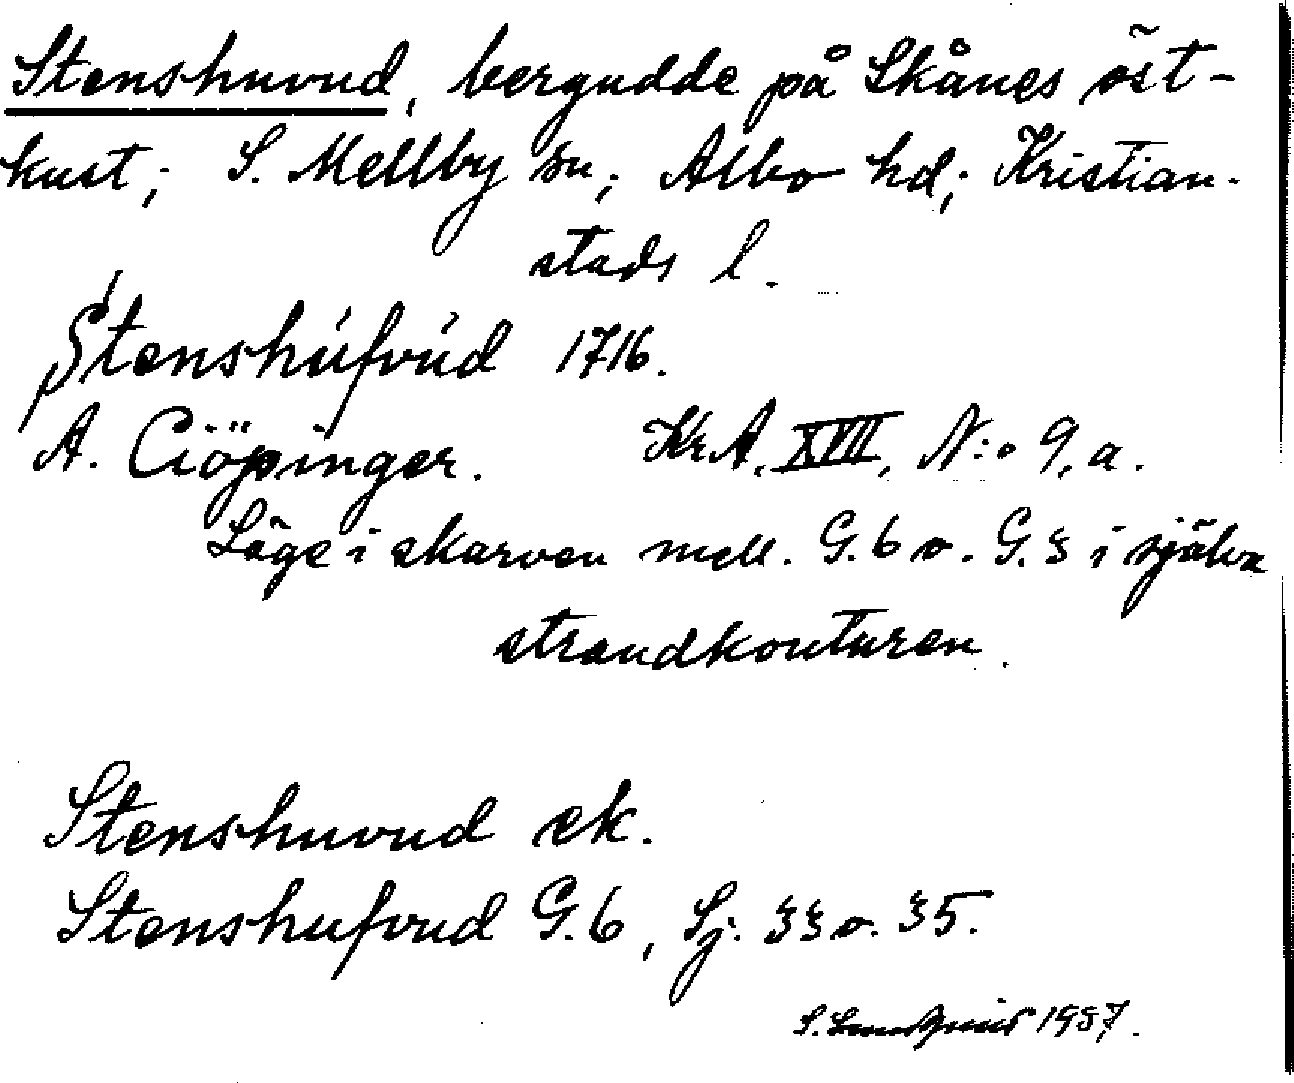 Stenshuvud, bergudde på Skånes öst-
kust; S. Mellby sn; Albo hd; Kristian-
stads l.
Stenshúfvúd 1716.
A. Ciöpinger. KrA, XVII, N:o 9, a.
Läge i skarven mell. G.6 o. G.3 i själva
strandkonturen.
Stenshuvud ek.
Stenshufvud G.6, Sj. 33 o. 35.
S. 1937.